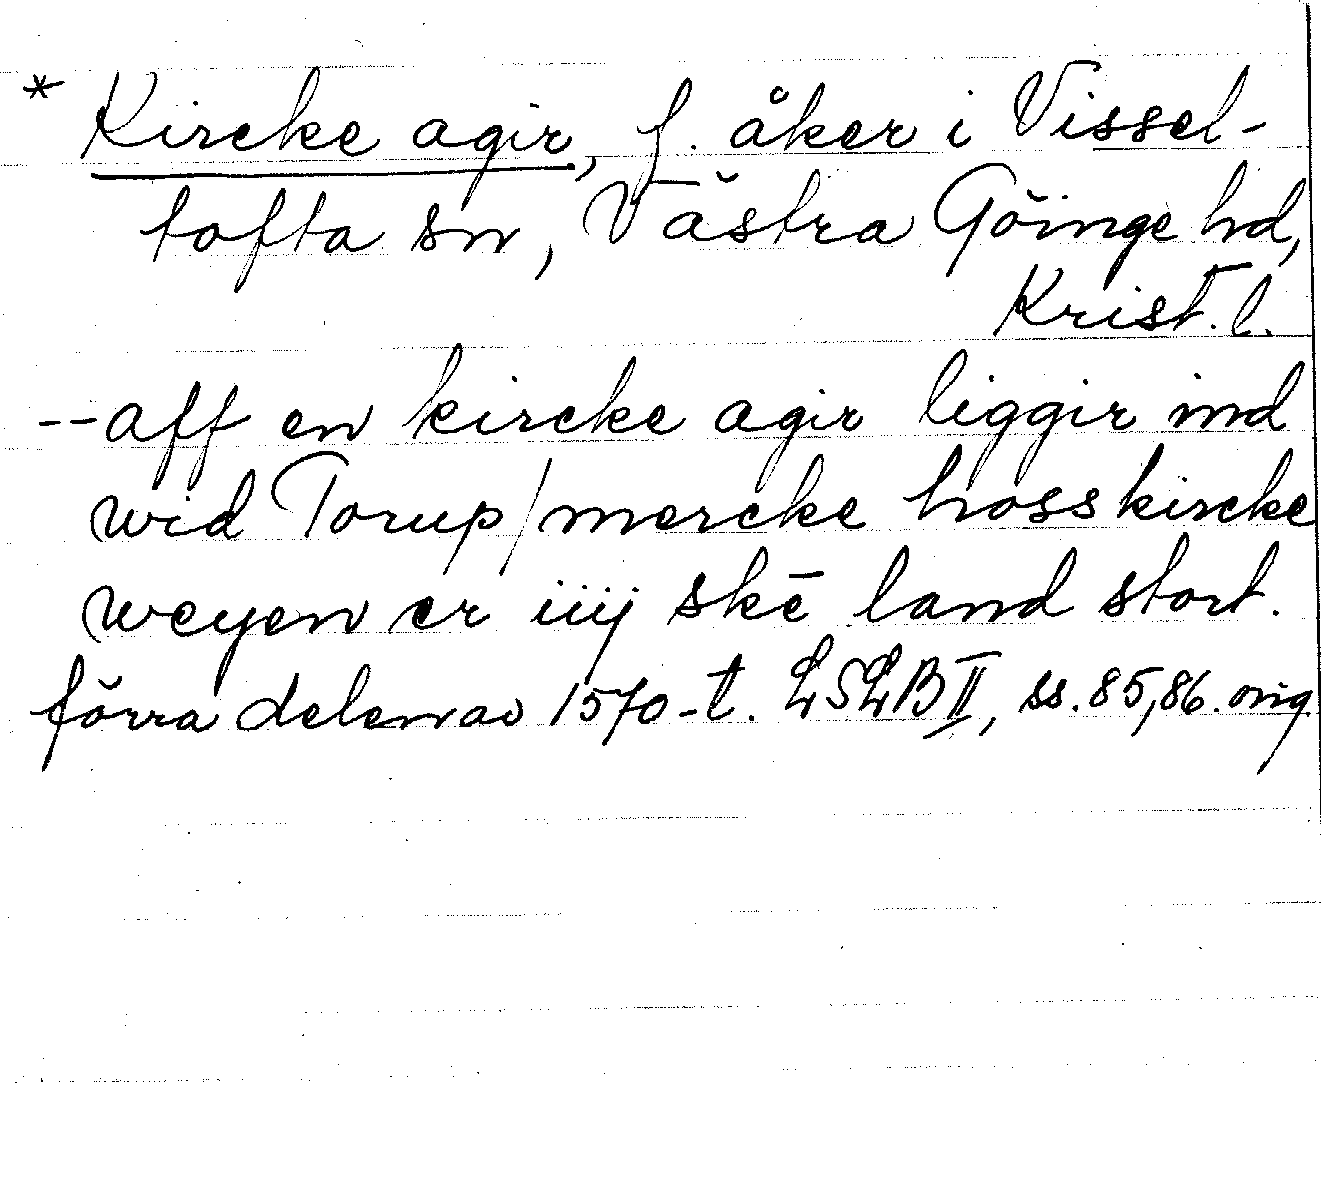 * Kircke agir, f. åker i Vissel-
tofta sn, Västra Göinge hd,
Krist. l.
-- aff en kircke agir liggir ind
wid Torup / mercke hoss kircke
weyen er iiij skē land stort.
förra delen av 1570-t. LSLB II, ss. 85, 86. orig.